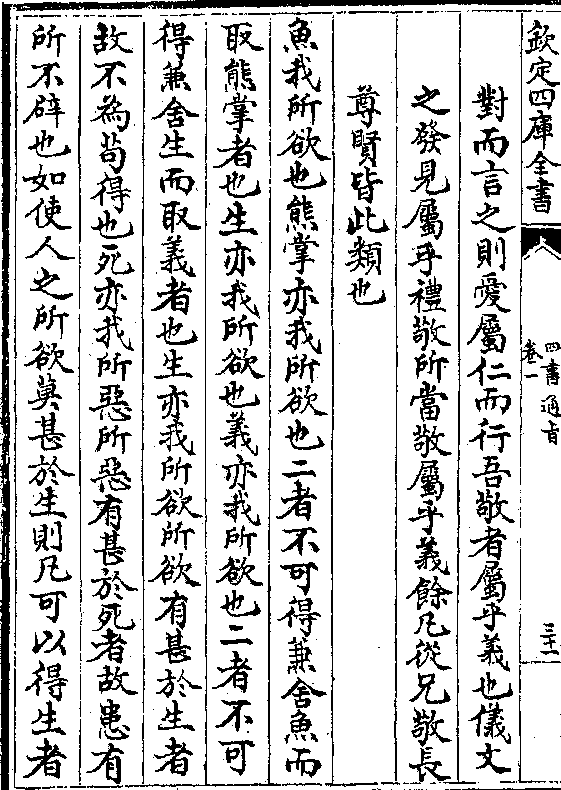 欽定四庫全書
四書通旨
卷一
三十一
對而言之則愛屬仁而行吾敬者屬乎義也儀文
之發見屬乎禮敬所當敬屬乎義餘凡從兄敬長
尊賢皆此類也
魚我所欲也熊掌亦我所欲也二者不可得兼舍魚而
取熊掌者也生亦我所欲也義亦我所欲也二者不可
得兼舍生而取義者也生亦我所欲所欲有甚於生者
故不為茍得也死亦我所惡所惡有甚於死者故患有
所不辟也如使人之所欲莫甚於生則凡可以得生者